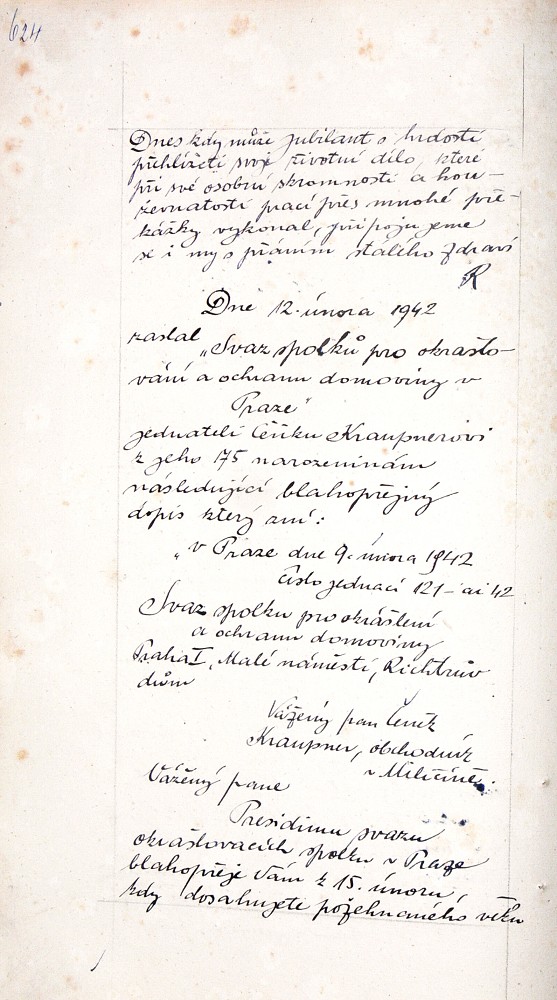 624
Dnes kdy může jubilant s hrdostí
přehlížeti svoje životní dílo, které
při své osobní skromnosti a hou-
ževnatosti prací přes mnohé pře-
kážky vykonal, připojujeme
se i my s přáním stálého zdraví
R
Dne 12. února 1942
zaslal
„Svaz spolků pro okrašlo-
vání a ochranu domoviny v
Praze"
jednateli Čeňku Kraupnerovi
k jeho 75 narozeninám
následující blahopřejný
dopis který zní:
„v Praze dne 9. února 1942
číslo jednací 121 – ai 42
Svaz spolku pro okrášlení
a ochranu domoviny
Praha I, Malé náměstí, Richtrův
dům
Vážený pan Čeněk
Kraupner, obchodník
v Miličíně.
Vážený pane
Presidium svazu
okrašlovacích spolku v Praze
blahopřeje Vám k 15. únoru,
kdy dosahujete požehnaného věku